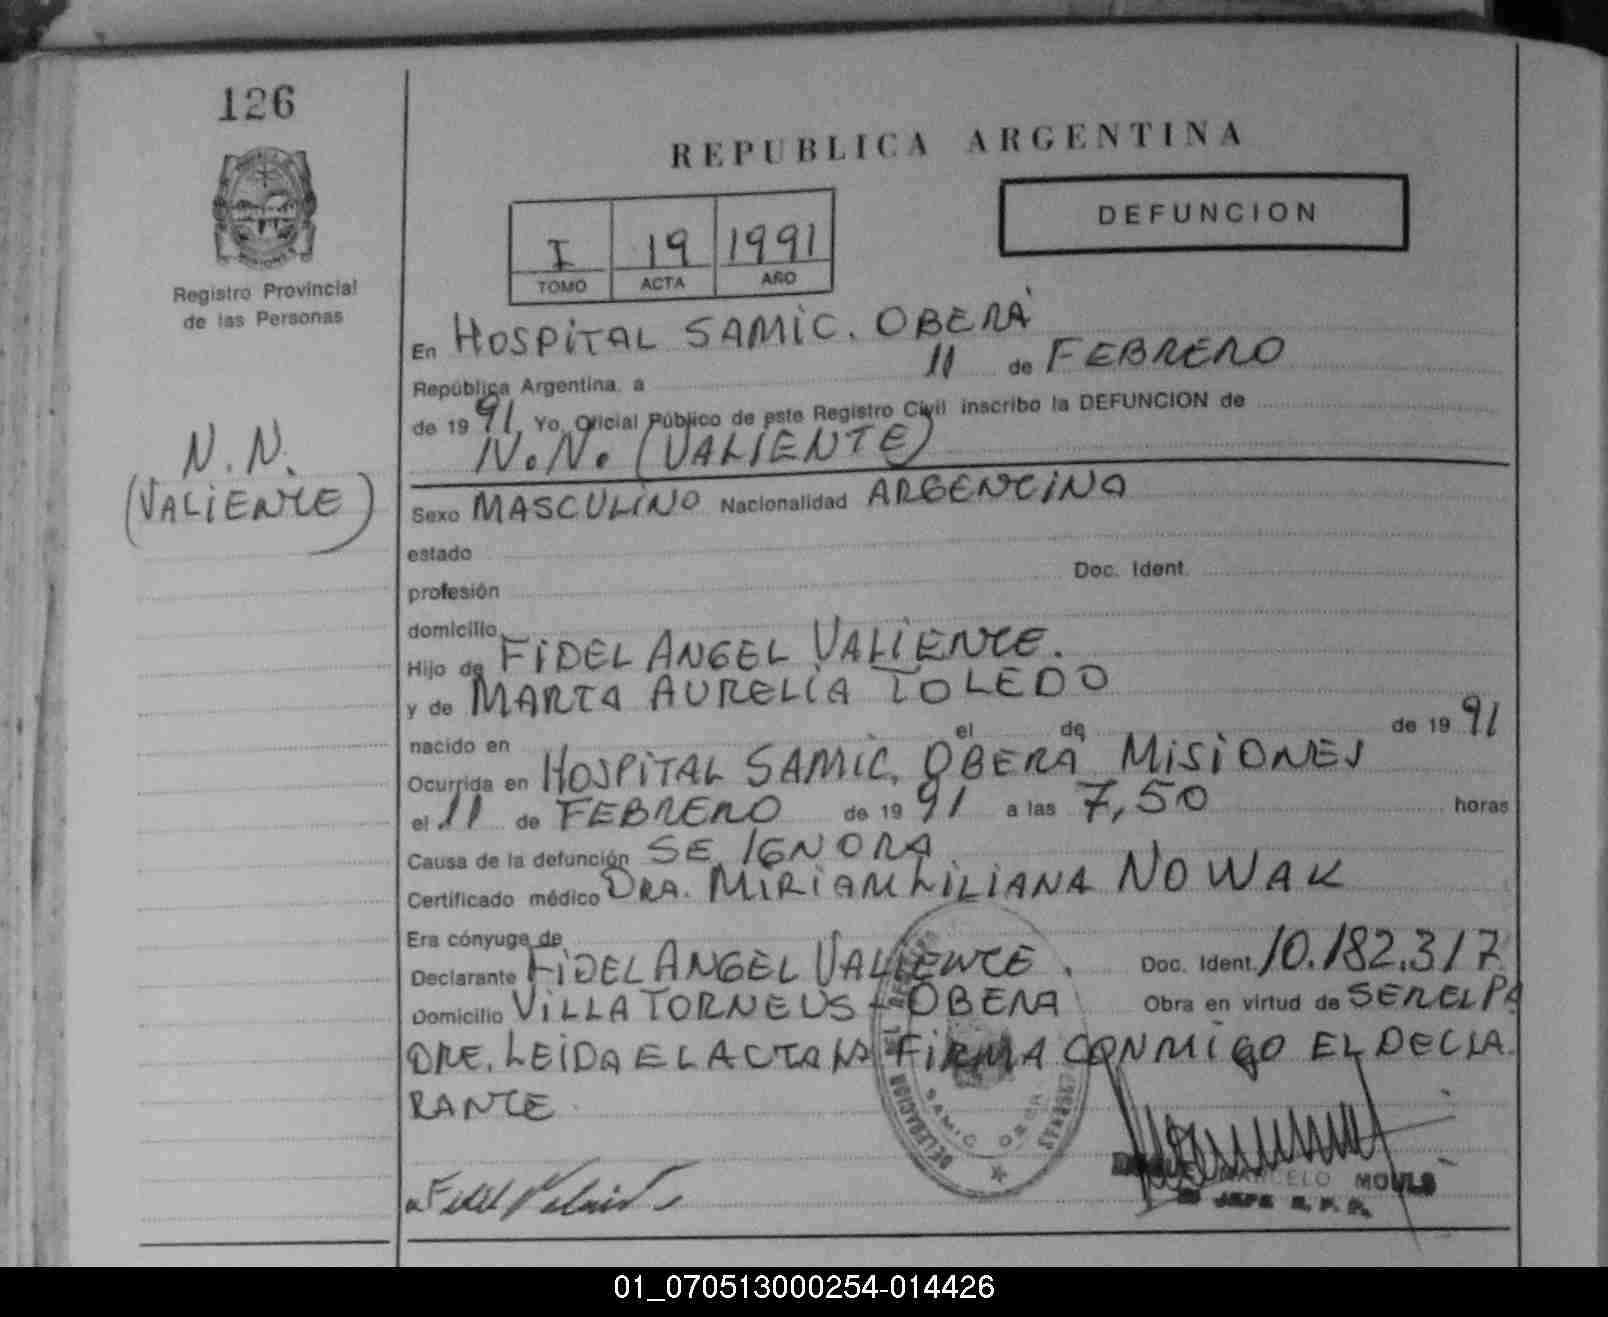 126
Registro Provincial
de las Personas
N.N.
(VALIENTE)
REPUBLICA ARGENTINA
DEFUNCION
I 19 1991
TOMO ACTA AÑO
En HOSPITAL SAMIC. OBERÁ
República Argentina, a 11 de FEBRERO
de 1991, Yo, Oficial Público de este Registro Civil inscribo la DEFUNCION de
N.N. (VALIENTE)
Sexo MASCULINO Nacionalidad ARGENTINO
estado
profesión Doc. Ident.
domicilio
Hijo de FIDEL ANGEL VALIENTE.
y de MARTA AURELIA TOLEDO
nacido en el de de 1991
Ocurrida en HOSPITAL SAMIC, OBERÁ MISIONES
el 11 de FEBRERO de 1991 a las 7,50 horas
Causa de la defunción SE IGNORA
Certificado médico DRA. MIRIAM LILIANA NOWAK
Era cónyuge de
Declarante FIDEL ANGEL VALIENTE. Doc. Ident. 10.182.317
Domicilio VILLA TORNEUS - OBERA Obra en virtud de SER EL PA
DRE. LEIDA EL ACTA LA FIRMA CONMIGO EL DECLA
RANTE
DELEGACION
SAMIC OBERA
MARCELO
JEFE R.P.P.
01_070513000254-014426